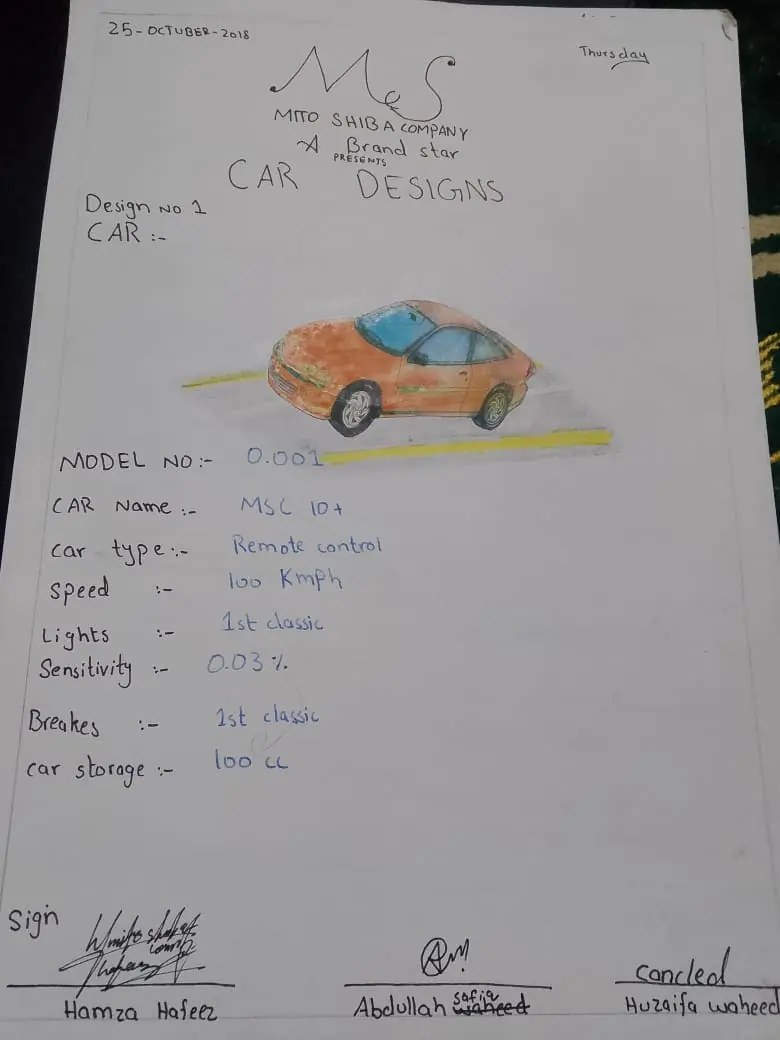 25-OCTUBER-2018
Thursday
M&S
MITO SHIBA COMPANY
A Brand star
PRESENTS
CAR DESIGNS
Design No 1
CAR :-
MODEL NO:- 0.001
CAR Name :- MSC 10+
car type:- Remote control
Speed :- 100 Kmph
Lights :- 1st classic
Sensitivity :- 0.03 %
Breakes :- 1st classic
car storage :- 100 cc
Sign
concled
Hamza Hafeez
Abdullah safija waheed
Huzaifa waheed